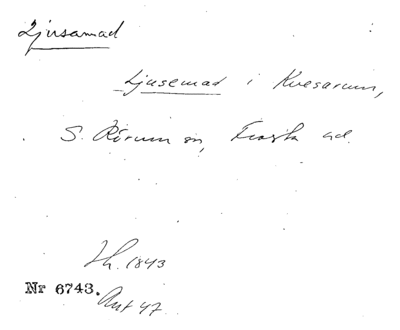 Ljusamad
Ljusemad i Kvesarum,
S. Rörum sn, Frosta hd.
Th. 1843
Nr 6743.
Ant 47